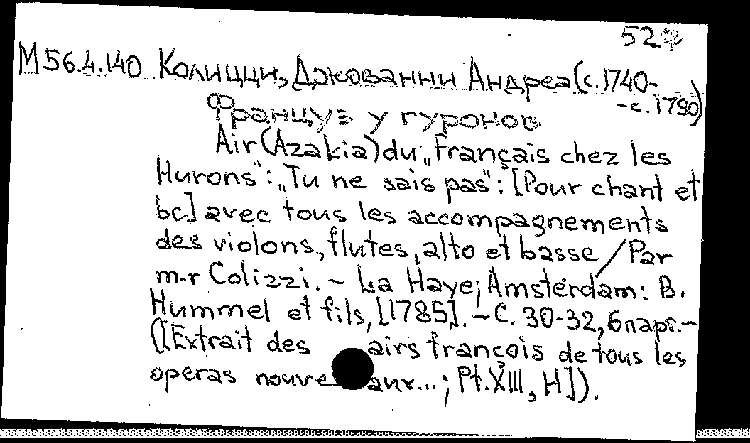 52
М56.4.140 Колицци, Джованни Андреа (с. 1740-
-с. 1790)
Француз у гуронов
Air (Azakia) du „Français chez les
Hurons": „Tu ne sais pas": [Pour chant et
bc] avec tous les accompagnements
des violons, flutes, alto et basse / Par
m-r Colizzi. – La Haye; Amsterdam: B.
Hummel et fils, [1785]. – С. 30-32, 6 парт. –
([Extrait des airs françois de tous les
operas nouveaux...; Pt. XIII, H]).